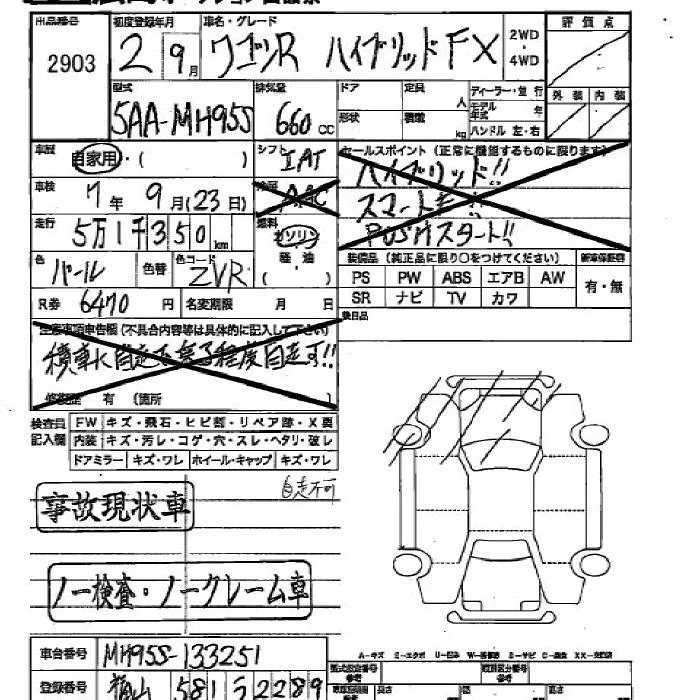 出品番号 初度登録年月 車名・グレード 評価点
2903 2 9月 ワゴンR ハイブリッドFX 2WD・4WD
型式 排気量 ドア 定員 人 ディーラー・並行 外装 内装
5AA-MH95S 660cc 形状 積載 kg モデル年式 年
ハンドル 左・右
車歴 自家用・( ) シフト IAT セールスポイント (正常に機能するものに限ります)
ハイブリッド!!
車検 7年 9月(23日) AAC
スマートキー!!
PUSHスタート!!
走行 5万1千350km 燃料 ガソリン 軽油 ( )
色 パール 色替 色コード ZVR
装備品 (純正品に限り○をつけてください) 新車保証書
PS PW ABS エアB AW 有・無
SR ナビ TV カワ
R券 6470円 名変期限 月 日
後日品
注意事項申告欄 (不具合内容等は具体的に記入して下さい)
積車に自走
程度自走可!!
修復歴 有 (箇所 )
検査員記入欄 FW キズ・飛石・ヒビ割・リペア跡・X要
内装 キズ・汚レ・コゲ・穴・スレ・ヘタリ・破レ
ドアミラー キズ・ワレ ホイール・キャップ キズ・ワレ
自走不可
事故現状車
ノー検査・ノークレーム車
車台番号 MH95S-133251
登録番号 581 う 2289